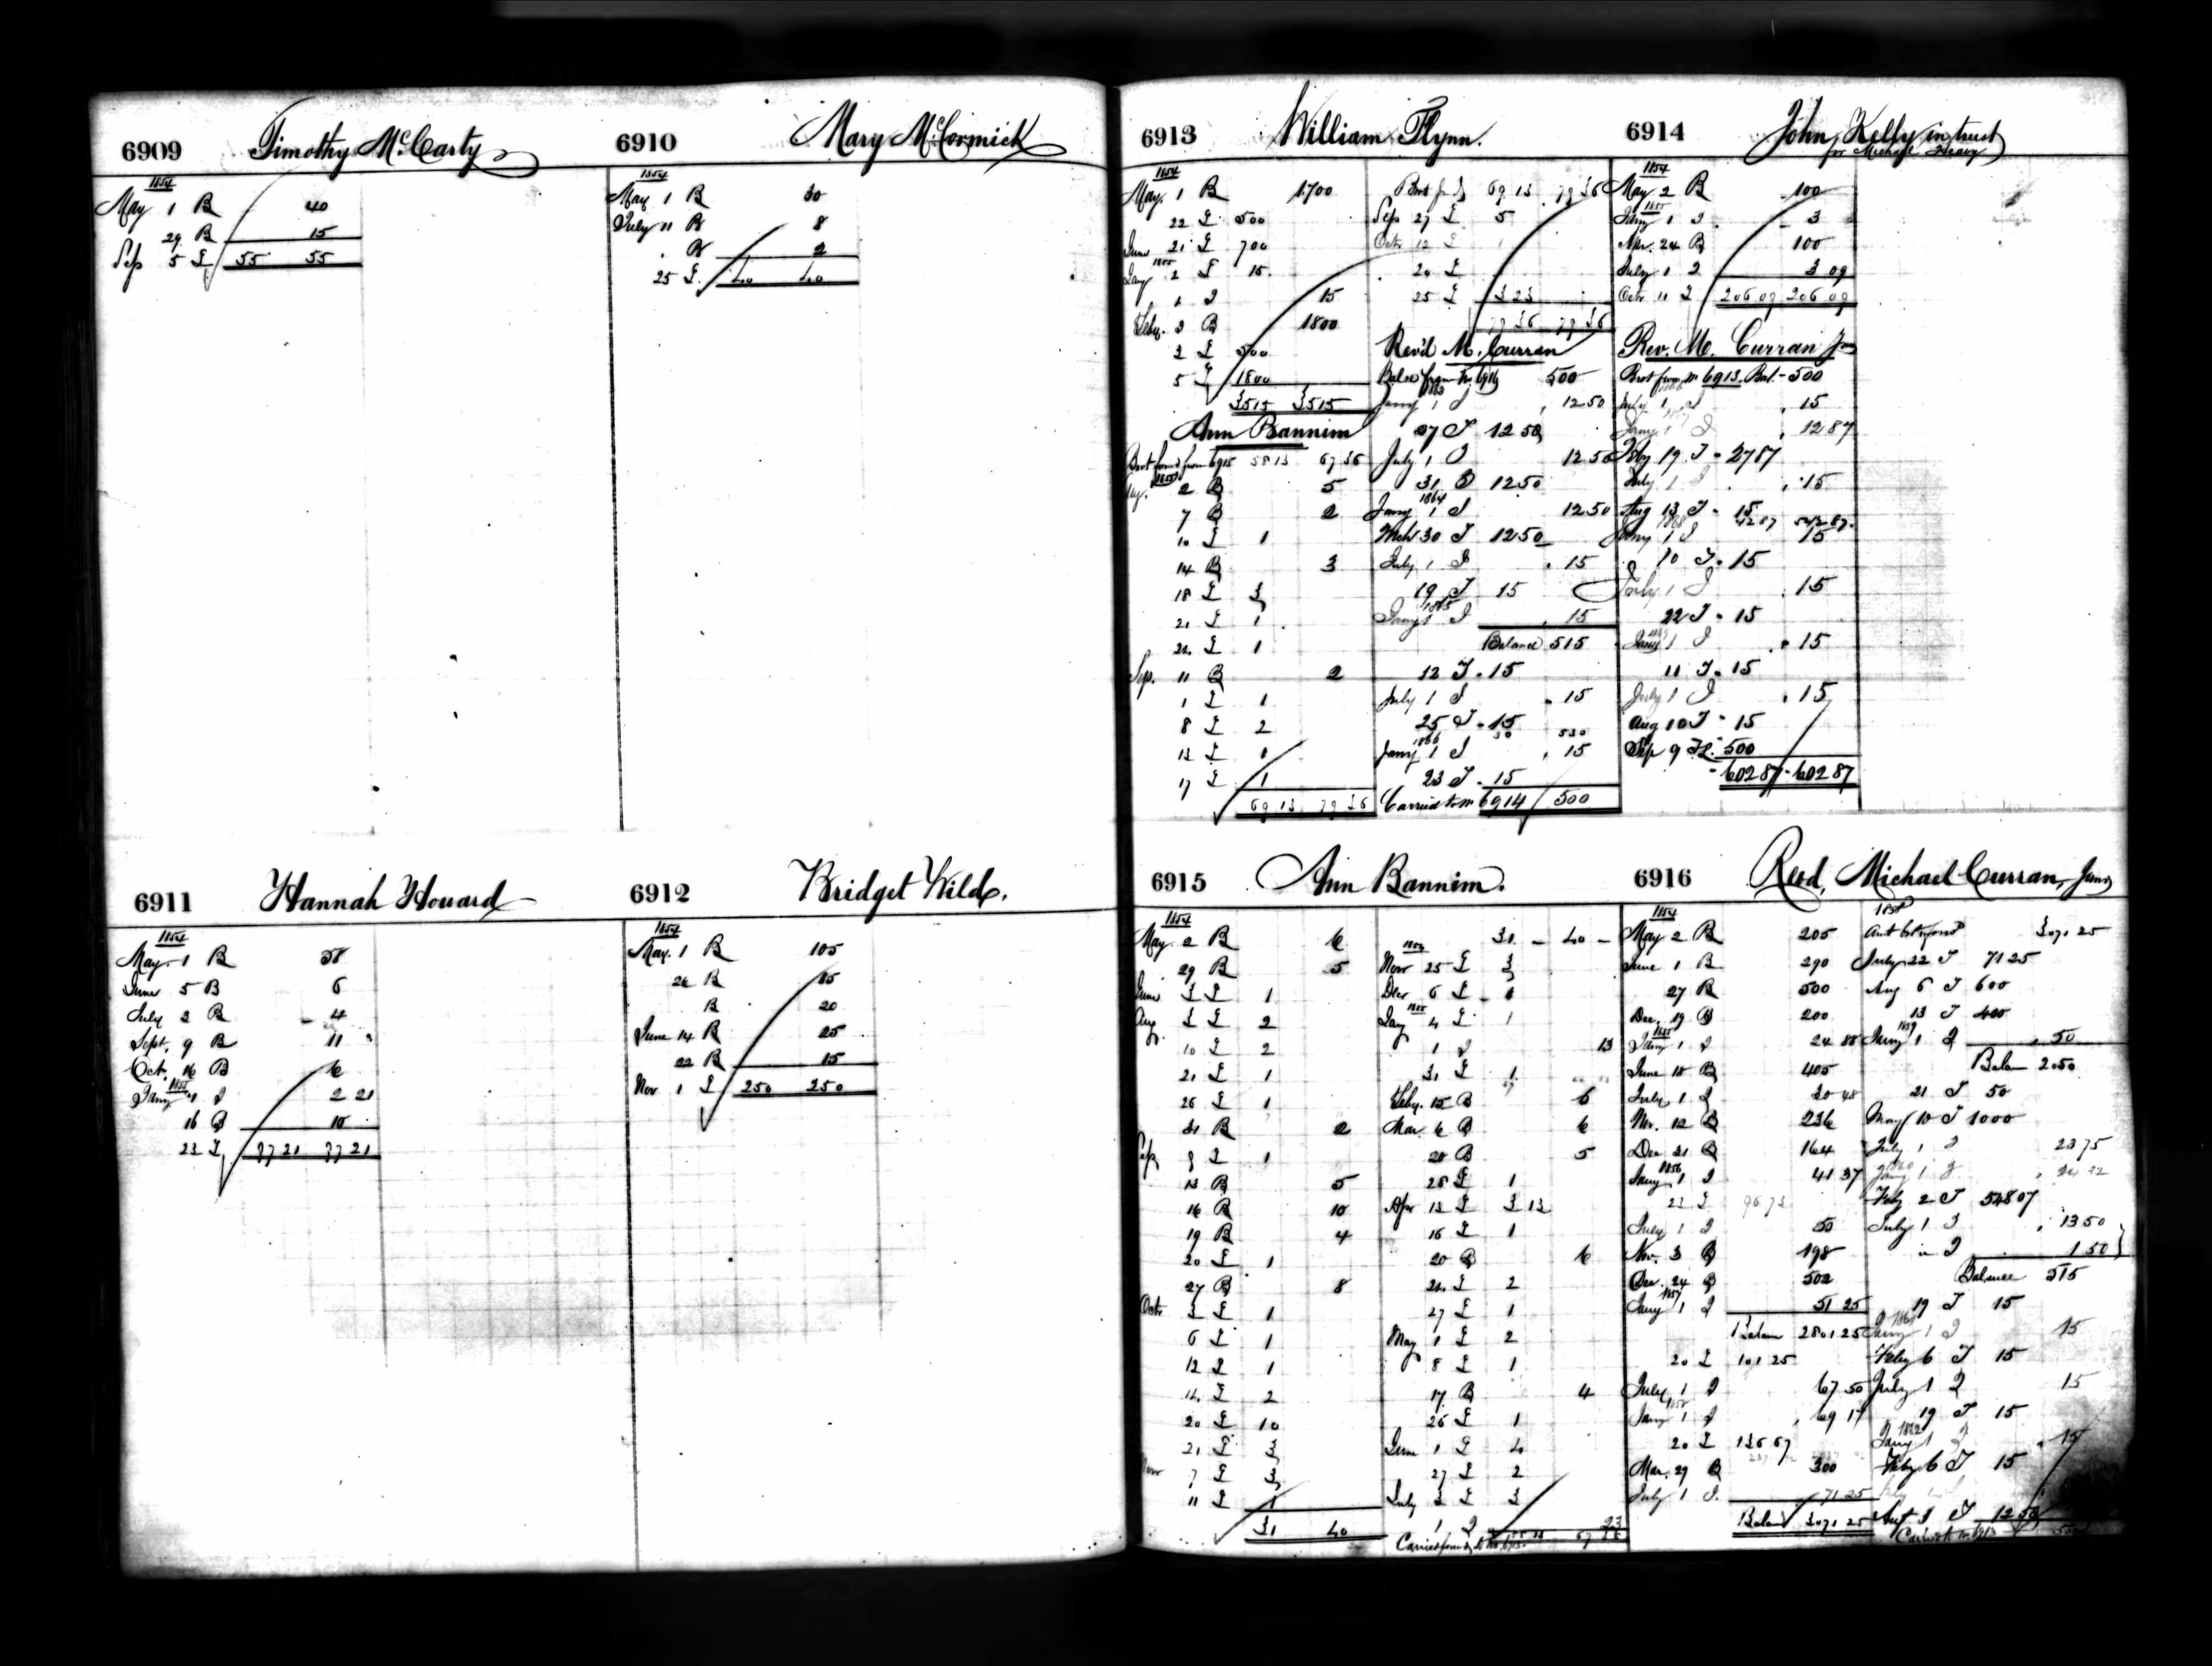 6909 Timothy McCarty
1854
May 1 B 40
29 B 15
Sep 5 L 55 55
6910 Mary McCormick
1854
May 1 B 30
July 11 B 8
B 2
25 L 40 40
6911 Hannah Howard
1854
May 1 B 58
June 5 B 6
July 2 B 4
Sept. 9 B 11
Oct. 16 B 6
1855
Jany 1 I 2 21
16 B 10
23 L 97 21 97 21
6912 Bridget Wild.
1854
May 1 B 105
26 B 85
B 20
June 14 B 25
22 B 15
Nov 1 L 250 250
6913 William Flynn.
1854
May. 1 B 1700
22 L 500
June 21 L 700
1855
Jany 2 L 15
1 I 15
Feby. 2 B 1800
2 L 500
5 L 1800
3515 3515
Ann Bannim
Brot forwd from 6915 58 13 67 36
1855
Aug. 2 B 5
7 B 2
10 L 1
14 B 3
18 L 3
21 L 1
22 L 1
Sep. 11 B 2
1 L 1
8 L 2
13 L 1
17 L 1
69 13 79 36
Brot ford 69 13 79 36
Sep 27 L 5
Octr 12 L 1
20 L
25 L 3 23
79 36 79 36
Rev'd M. Curran
Balce from No 6916 500
1863
Jany 1 I 12 50
27 T 12 50
July 1 I 12 50
31 T 12 50
1864
Jany 1 I 12 50
Mch 30 T 12 50
July 1 I 15
19 T 15
1865
Jany 1 I 15
Balance 515
12 T 15
July 1 I 15
25 T 15
30 530
1866
Jany 1 I 15
23 T 15
Carried to No 6914 500
6914 John Kelly in trust
for Michael Heavy
1854
May 2 B 100
1855
Jany 1 I 3
Apr. 24 B 100
July 1 I 3 09
Octr 11 L 206 09 206 09
Rev. M. Curran Jun
Brot from No 6913. Bal. 500
July 1 I 15
Jany 1 I 12 87
Feby 19 T 27 87
July 1 I 15
Aug 13 T 15
42 87 542 87
1868
Jany 1 I 15
10 T 15
July 1 I 15
22 T 15
1869
Jany 1 I 15
11 T 15
July 1 I 15
Aug 10 T 15
Sep 9 T 500
602 87 602 87
6915 Ann Bannim.
1854
May 2 B 6
29 B 5
June 3 L 1
Aug. 3 L 2
10 L 2
21 L 1
26 L 1
31 B 2
Sep 9 L 1
13 B 5
16 B 10
19 B 4
20 L 1
27 B 8
Octr 3 L 1
6 L 1
12 L 1
14 L 2
20 L 10
21 L 3
Novr 7 L 3
11 L 1
31 40
31 40
1854
Novr 25 L 3
Decr 6 L 1
1855
Jany 4 L 1
1 I 13
31 L 1
Feby. 15 B 6
Mar. 6 B 6
20 B 5
28 L 1
Apr 13 L 3 13
16 L 1
20 B 6
24 L 2
27 L 1
May 1 L 2
8 L 1
17 B 4
26 L 1
June 1 L 4
27 L 2
July 3 L 3
1 I 23
Carried forwd to No. 6913 58 13 67 36
6916 Revd. Michael Curran, Junr
1854
May 2 B 205
June 1 B 290
27 B 500
Dec. 19 B 200
1855
Jany 1 I 24 88
June 18 B 405
July 1 I 30 48
Nov. 12 B 236
Dec 21 B 164
1856
Jany 1 I 41 37
23 L 96 73
July 1 I 50
Nov. 3 B 198
Dec. 24 B 502
1857
Jany 1 I 51 25
Balance 2801 25
20 L 101 25
July 1 I 67 50
1858
Jany 1 I 69 17
20 L 136 67
Mar. 29 B 300
July 1 I 71 25
Balance 3071 25
1858
Amt brt forwd 3071 25
July 22 T 71 25
Aug 6 T 600
13 T 400
1859
Jany 1 I 50
Balan 2050
21 T 50
May 10 T 1000
July 1 I 23 75
1860
Jany 1 I 24 32
Feby 2 T 548 07
July 1 I 13 50
I 1 50
Balance 515
19 T 15
1861
Jany 1 I 15
Feby 6 T 15
July 1 I 15
19 T 15
1862
Jany 1 I 15
Feby 6 T 15
T 12 50
Carried to No 6913 500